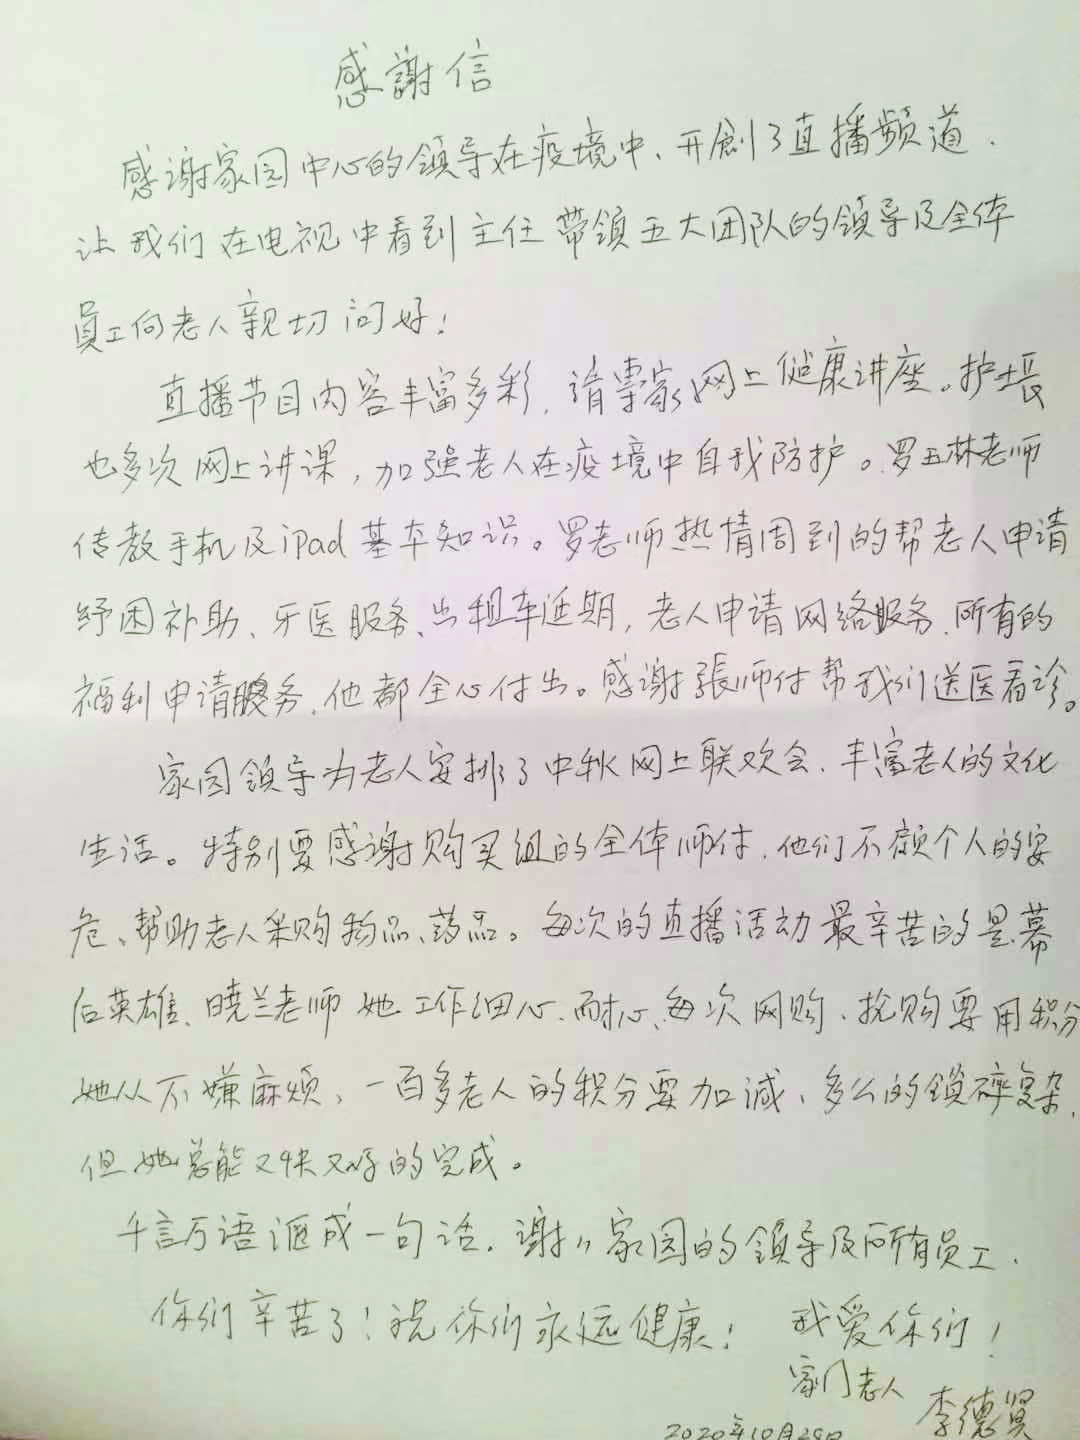 感謝信
感谢家园中心的領导在疫境中、开創了直播频道.
让我们在电视中看到主任带領五大团队的領导及全体
員工向老人親切问好!
直播节目内容丰富多彩.请專家网上健康讲座。护士長
也多次网上讲课,加强老人在疫境中自我防护。罗玉林老师
传教手机及iPad基本知识。罗老师热情周到的帮老人申请
纾困补助、牙医服务、出租车延期,老人申请网络服务.所有的
福利申请服务.他都全心付出。感谢張师付帮我们送医看诊。
家园領导为老人安排了中秋网上联欢会.丰富老人的文化
生活。特别要感谢购买组的全体师付.他们不顾个人的安
危、帮助老人采购物品、药品。每次的直播活动最辛苦的是幕
后英雄、晓兰老师她工作细心.耐心、每次网购、抢购要用积分
她从不嫌麻烦、一百多老人的积分要加减、多么的鎖碎复杂.
但她总能又快又好的完成。
千言万语滙成一句话.谢〃家园的領导及所有員工.
你们辛苦了!祝你们永远健康! 我爱你们!
家门老人
李德贤
2020年10月29日